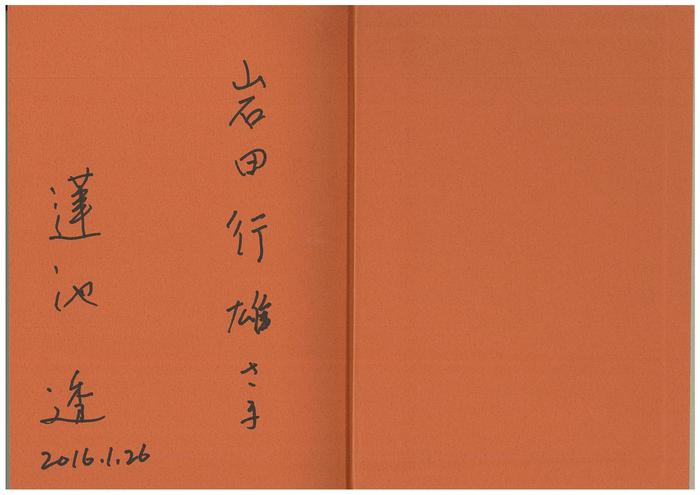 岩田行雄さま
蓮池透
2016.1.26